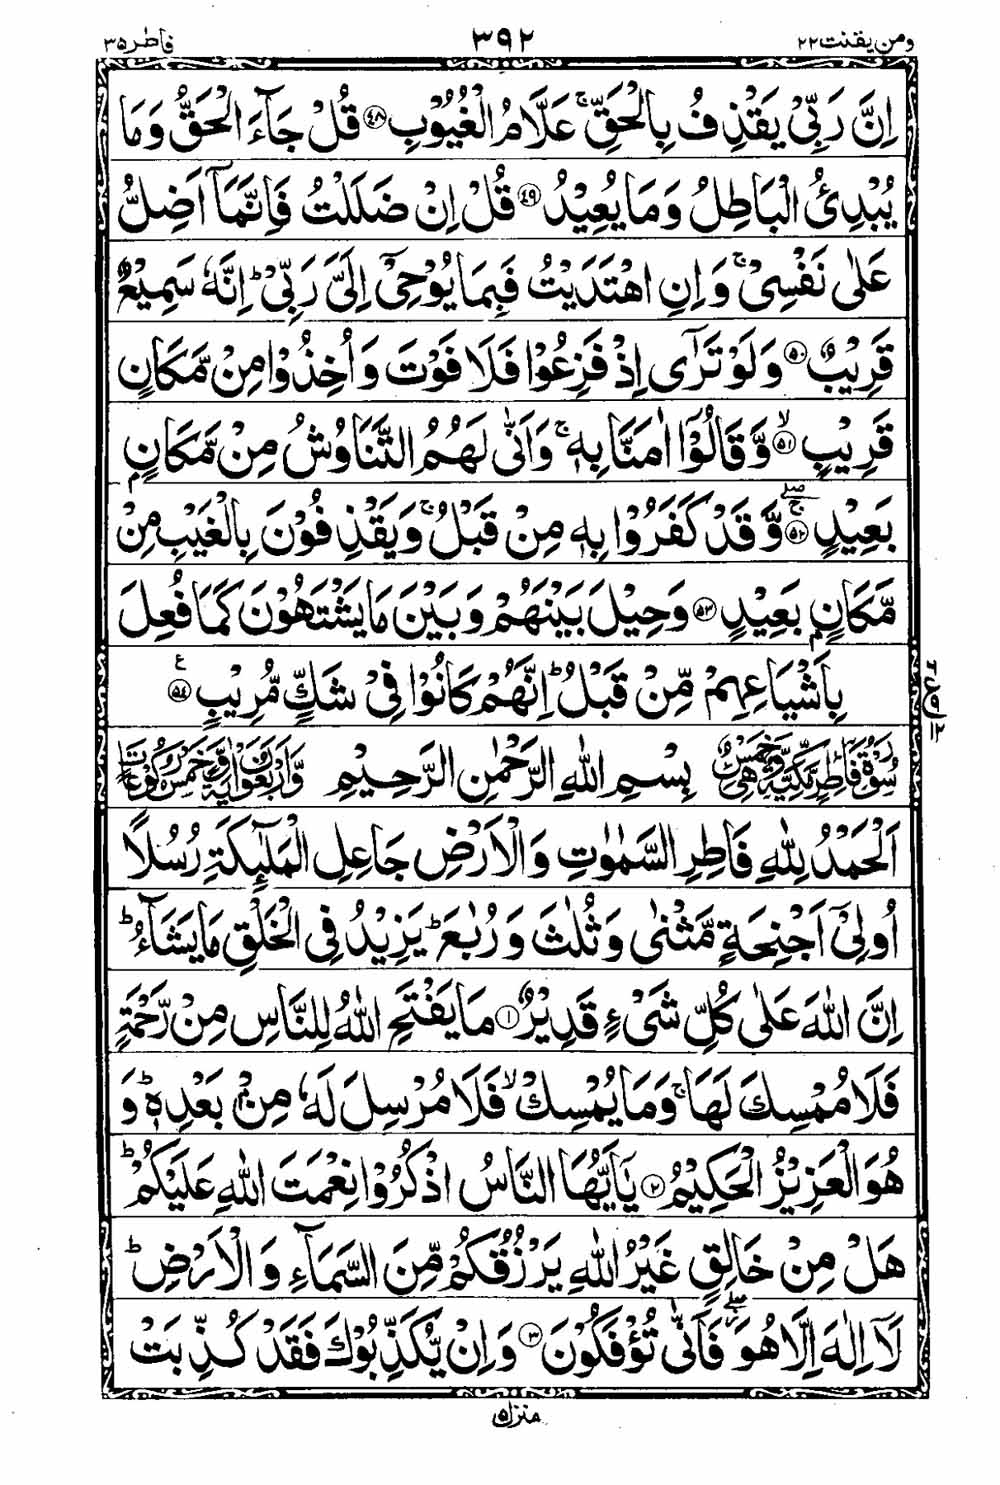 ومن یقنت ۲۲ ۳۹۲ فاطر ۳۵
اِنَّ رَبِّیْ یَقْذِفُ بِالْحَقِّ ۚ عَلَّامُ الْغُیُوْبِ ﴿۴۸﴾ قُلْ جَآءَ الْحَقُّ وَمَا
یُبْدِئُ الْبَاطِلُ وَمَا یُعِیْدُ ﴿۴۹﴾ قُلْ اِنْ ضَلَلْتُ فَاِنَّمَاۤ اَضِلُّ
عَلٰی نَفْسِیْ ۚ وَاِنِ اهْتَدَیْتُ فَبِمَا یُوْحِیْۤ اِلَیَّ رَبِّیْ ؕ اِنَّهٗ سَمِیْعٌ
قَرِیْبٌ ﴿۵۰﴾ وَلَوْ تَرٰۤی اِذْ فَزِعُوْا فَلَا فَوْتَ وَاُخِذُوْا مِنْ مَّكَانٍ
قَرِیْبٍ ﴿ۙ۵۱﴾ وَّقَالُوْۤا اٰمَنَّا بِهٖ ۚ وَاَنّٰی لَهُمُ التَّنَاوُشُ مِنْ مَّكَانٍۭ
بَعِیْدٍ ﴿ۚۖ۵۲﴾ وَّقَدْ كَفَرُوْا بِهٖ مِنْ قَبْلُ ۚ وَیَقْذِفُوْنَ بِالْغَیْبِ مِنْ
مَّكَانٍۭ بَعِیْدٍ ﴿۵۳﴾ وَحِیْلَ بَیْنَهُمْ وَبَیْنَ مَا یَشْتَهُوْنَ كَمَا فُعِلَ
بِاَشْیَاعِهِمْ مِّنْ قَبْلُ ؕ اِنَّهُمْ كَانُوْا فِیْ شَكٍّ مُّرِیْبٍ ﴿۵۴﴾ ع
سُوْرَةُ فَاطِرٍ مَّكِّیَّةٌ وَّهِیَ خَمْسٌ بِسْمِ اللهِ الرَّحْمٰنِ الرَّحِیْمِ وَّاَرْبَعُوْنَ اٰیَةً وَّخَمْسُ رُكُوْعَاتٍ
اَلْحَمْدُ لِلّٰهِ فَاطِرِ السَّمٰوٰتِ وَالْاَرْضِ جَاعِلِ الْمَلٰٓئِكَةِ رُسُلًا
اُولِیْۤ اَجْنِحَةٍ مَّثْنٰی وَثُلٰثَ وَرُبٰعَ ؕ یَزِیْدُ فِی الْخَلْقِ مَا یَشَآءُ ؕ
اِنَّ اللهَ عَلٰی كُلِّ شَیْءٍ قَدِیْرٌ ﴿۱﴾ مَا یَفْتَحِ اللهُ لِلنَّاسِ مِنْ رَّحْمَةٍ
فَلَا مُمْسِكَ لَهَا ۚ وَمَا یُمْسِكْ ۙ فَلَا مُرْسِلَ لَهٗ مِنْۢ بَعْدِهٖ ؕ وَ
هُوَ الْعَزِیْزُ الْحَكِیْمُ ﴿۲﴾ یٰۤاَیُّهَا النَّاسُ اذْكُرُوْا نِعْمَتَ اللهِ عَلَیْكُمْ ؕ
هَلْ مِنْ خَالِقٍ غَیْرُ اللهِ یَرْزُقُكُمْ مِّنَ السَّمَآءِ وَالْاَرْضِ ؕ
لَاۤ اِلٰهَ اِلَّا هُوَ ۖ فَاَنّٰی تُؤْفَكُوْنَ ﴿۳﴾ وَاِنْ یُّكَذِّبُوْكَ فَقَدْ كُذِّبَتْ
منزل ۵